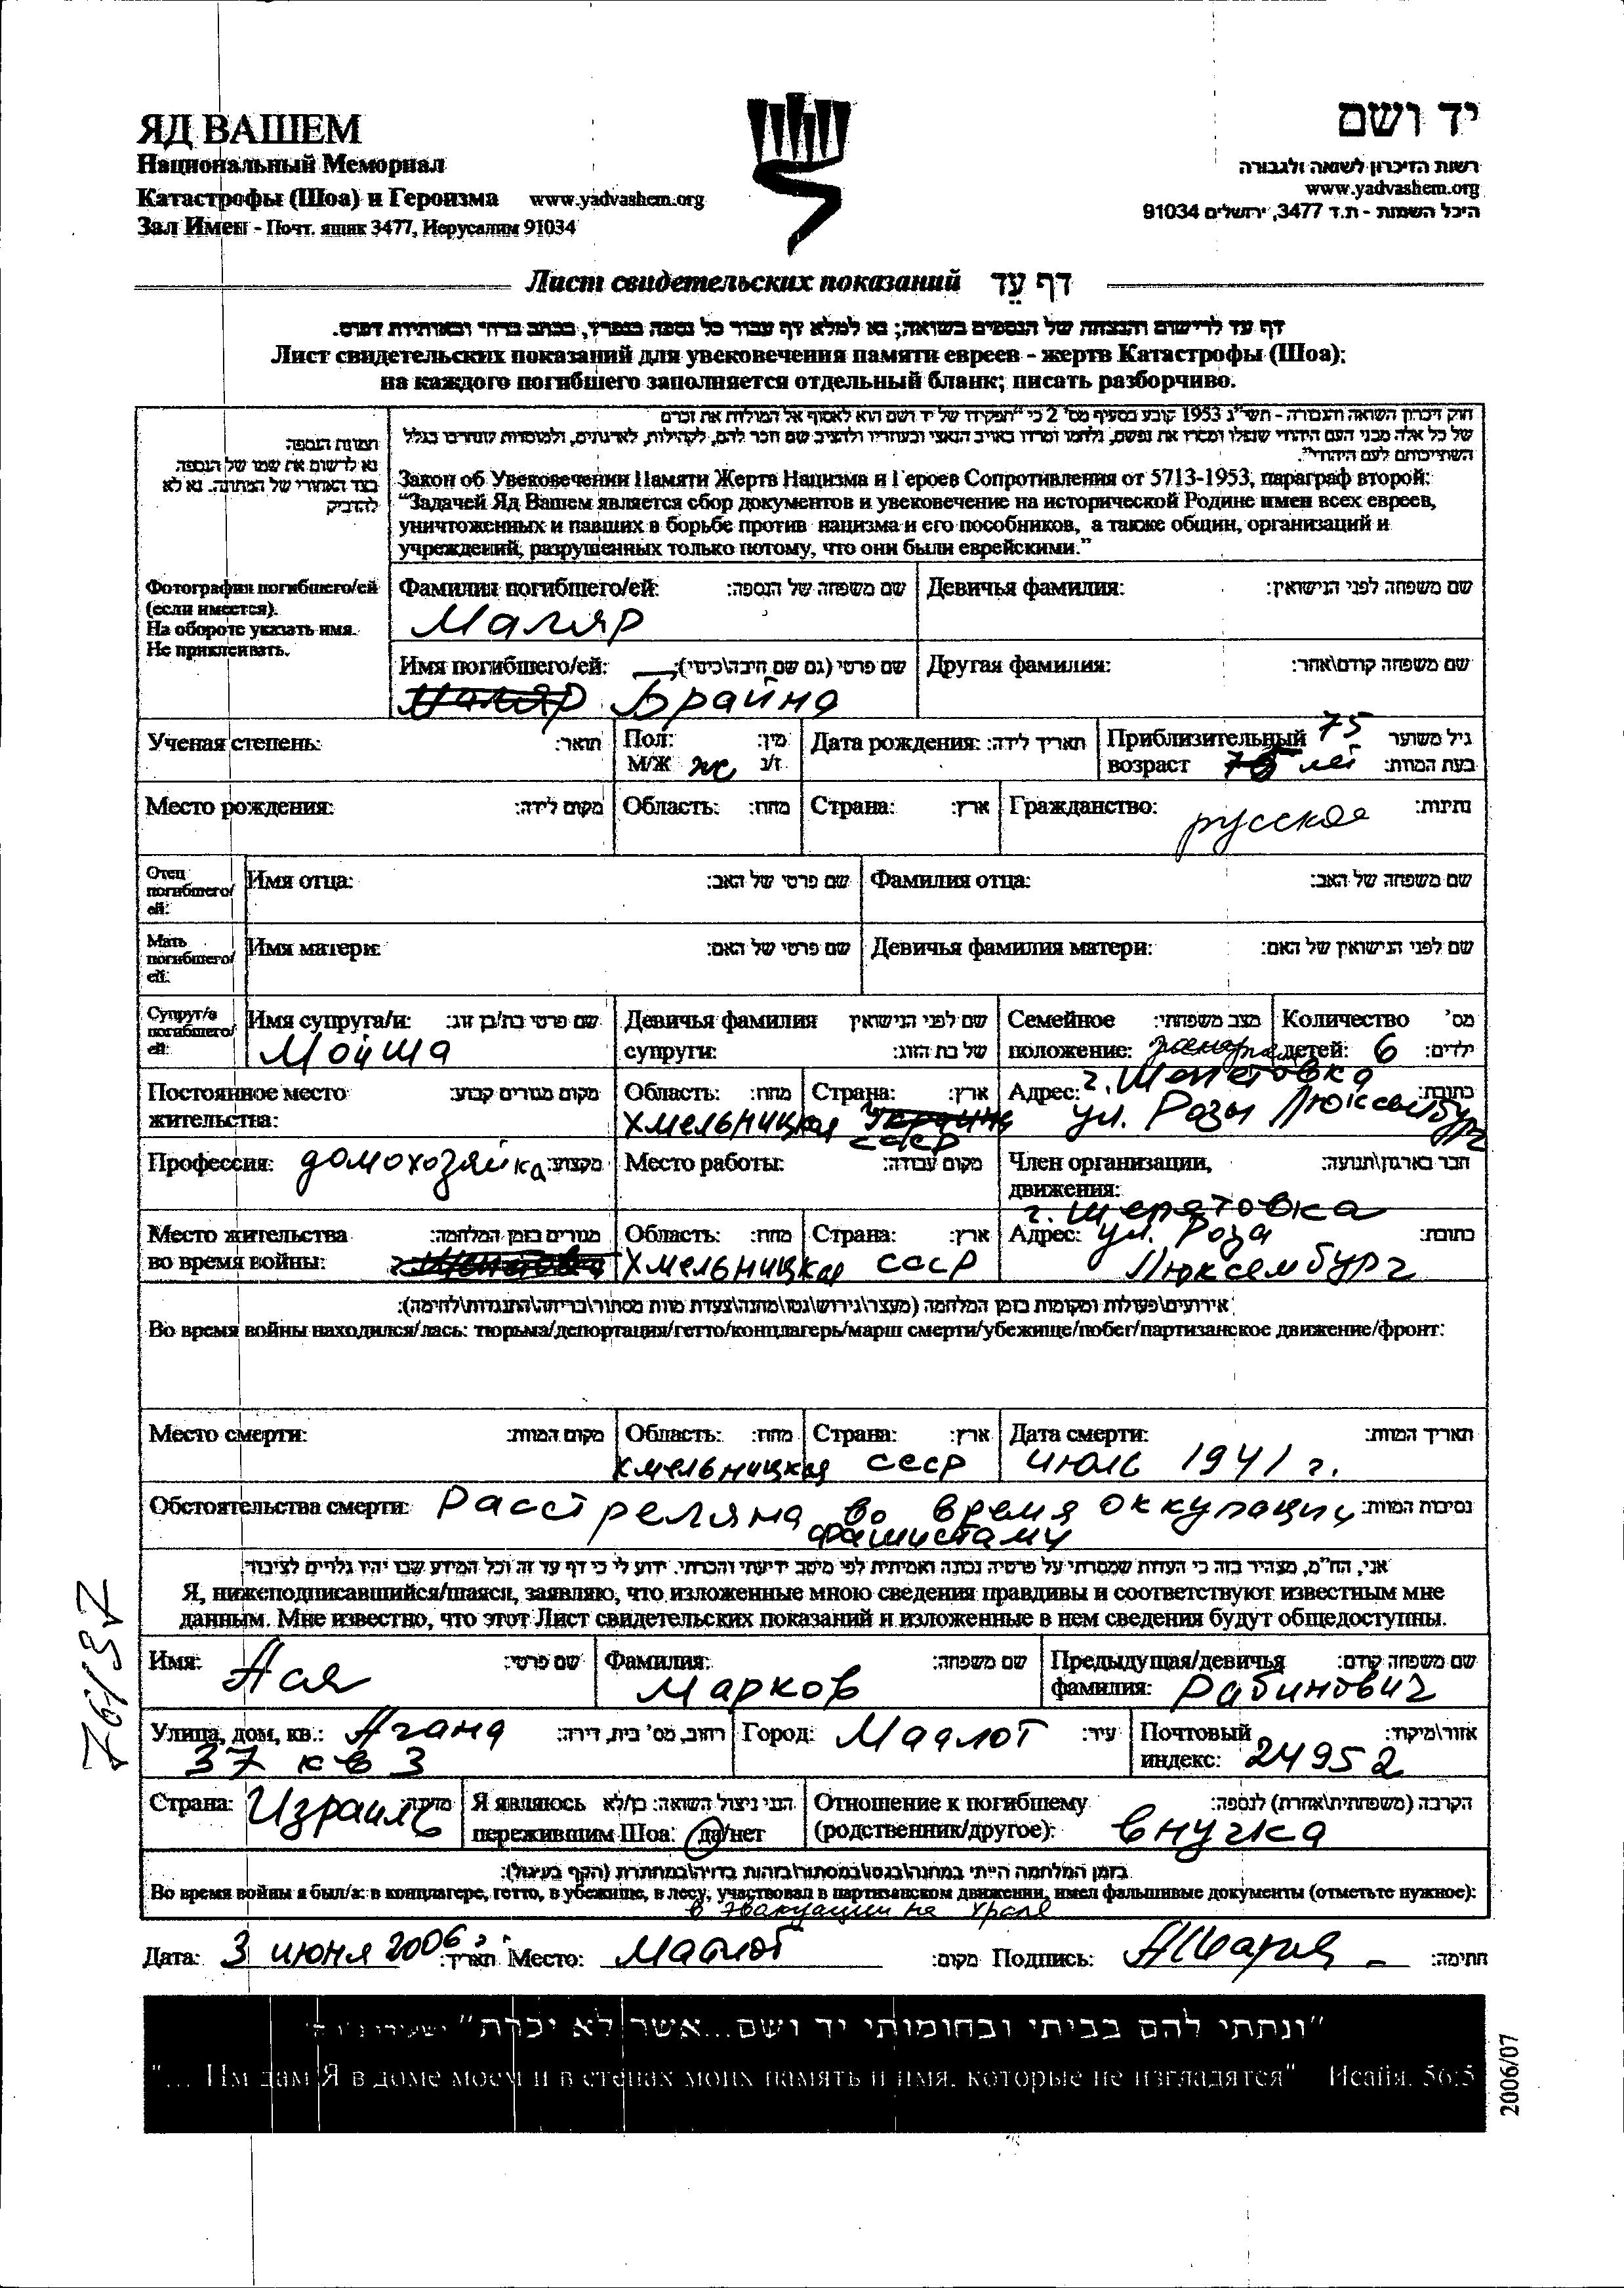 ЯД ВАШЕМ
Национальный Мемориал
Катастрофы (Шоа) и Героизма www.yadvashem.org
Зал Имен - Почт. ящик 3477, Иерусалим 91034
יד ושם
רשות הזיכרון לשואה ולגבורה
www.yadvashem.org
היכל השמות - ת.ד 3477, ירושלים 91034
Лист свидетельских показаний דף עֵד
דף עד לרישום והנצחה של הנספים בשואה; נא למלא דף עבור כל נספה בנפרד, בכתב ברור ובאותיות דפוס.
Лист свидетельских показаний для увековечения памяти евреев - жертв Катастрофы (Шоа);
на каждого погибшего заполняется отдельный бланк; писать разборчиво.
חוק זיכרון השואה והגבורה - תשי"ג 1953 קובע בסעיף מס' 2 כי "תפקידו של יד ושם הוא לאסוף אל המולדת את זכרם
של כל אלה מבני העם היהודי שנפלו ומסרו את נפשם, נלחמו ומרדו באויב הנאצי ובעוזריו ולהציב שם וזכר להם, לקהילות, לארגונים, ולמוסדות שנחרבו בגלל
השתייכותם לעם היהודי".
Закон об Увековечении Памяти Жертв Нацизма и Героев Сопротивления от 5713-1953, параграф второй:
"Задачей Яд Вашем является сбор документов и увековечение на исторической Родине имен всех евреев,
уничтоженных и павших в борьбе против нацизма и его пособников, а также общин, организаций и
учреждений, разрушенных только потому, что они были еврейскими."
תמונת הנספה
נא לרשום את שמו של הנספה
בצד האחורי של התמונה. נא לא
להדביק
Фотография погибшего/ей
(если имеется).
На обороте указать имя.
Не приклеивать.
Фамилия погибшего/ей: שם משפחה של הנספה: Девичья фамилия: שם משפחה לפני הנישואין:
Маляр
Имя погибшего/ей: שם פרטי (גם שם חיבה\כינוי): Другая фамилия: שם משפחה קודם\אחר:
Маляр Брайна
Ученая степень: תואר: Пол: מין: Дата рождения: תאריך לידה: Приблизительный 75 גיל משוער
М/Ж ж ז/נ возраст лет בעת המוות:
Место рождения: מקום לידה: Область: מחוז: Страна: ארץ: Гражданство: русское נתינות:
Отец погибшего/ей: Имя отца: שם פרטי של האב: Фамилия отца: שם משפחה של האב:
Мать погибшего/ей: Имя матери: שם פרטי של האם: Девичья фамилия матери: שם לפני הנישואין של האם:
Супруг/а погибшего/ей: Имя супруга/и: שם פרטי בת/בן זוג: Девичья фамилия שם לפני הנישואין Семейное מצב משפחתי: Количество מס'
Мойша супруги: של בת הזוג: положение: детей: 6 ילדים:
Постоянное место מקום מגורים קבוע: Область: מחוז: Страна: ארץ: Адрес: г. Шепетовка כתובת:
жительства: Хмельницкая Украина СССР ул. Розы Люксембург
Профессия: домохозяйка מקצוע: Место работы: מקום עבודה: Член организации, חבר בארגון\תנועה:
движения:
Место жительства מגורים בזמן המלחמה: Область: מחוז: Страна: ארץ: Адрес: г. Шепятовка ул. Роза כתובת:
во время войны: Хмельницкая СССР Люксембург
אירועים\פעולות ומקומות בזמן המלחמה (מעצר\גירוש\גטו\מחנה\צעדת מוות מסתור\בריחה\התנגדות\לחימה):
Во время войны находился/лась: тюрьма/депортация/гетто/концлагерь/марш смерти/убежище/побег/партизанское движение/фронт:
Место смерти: מקום המוות: Область: מחוז: Страна: ארץ: Дата смерти: תאריך המוות:
Хмельницкая СССР июль 1941 г.
Обстоятельства смерти: Расстреляна во время оккупации נסיבות המוות:
фашистами
אני, הח"מ, מצהיר בזה כי העדות שמסרתי על פרטיה נכונה ואמיתית לפי מיטב ידיעתי והכרתי. ידוע לי כי דף עד זה וכל המידע שבו יהיו גלויים לציבור.
Я, нижеподписавшийся/шаяся, заявляю, что изложенные мною сведения правдивы и соответствуют известным мне
данным. Мне известно, что этот Лист свидетельских показаний и изложенные в нем сведения будут общедоступны.
Имя: Ася שם פרטי: Фамилия: Марков שם משפחה: Предыдущая/девичья שם משפחה קודם:
фамилия: Рабинович
Улица, дом, кв.: Агана רחוב, מס' בית, דירה: Город: Маалот עיר: Почтовый אזור\מיקוד:
37 кв 3 индекс: 24952
Страна: Израиль מדינה: Я являюсь הנני ניצול השואה: כן/לא Отношение к погибшему הקרבה (משפחתית\אחרת) לנספה:
пережившим Шоа: да/нет (родственник/другое): внучка
בזמן המלחמה הייתי במחנה\בגטו\במסתור\בזהות בדויה\במחתרת (הקף בעיגול):
Во время войны я был/а: в концлагере, гетто, в убежище, в лесу, участвовал в партизанском движении, имел фальшивые документы (отметьте нужное):
в эвакуации на Урале
Дата: 3 июня 2006 г. תאריך: Место: Маалот מקום: Подпись: חתימה:
"ונתתי להם בביתי ובחומותי יד ושם...אשר לא יכרת" ישעיהו נ"ו ה'
"... Им дам Я в доме моем и в стенах моих память и имя, которые не изгладятся" Исайя, 56:5
2006/07